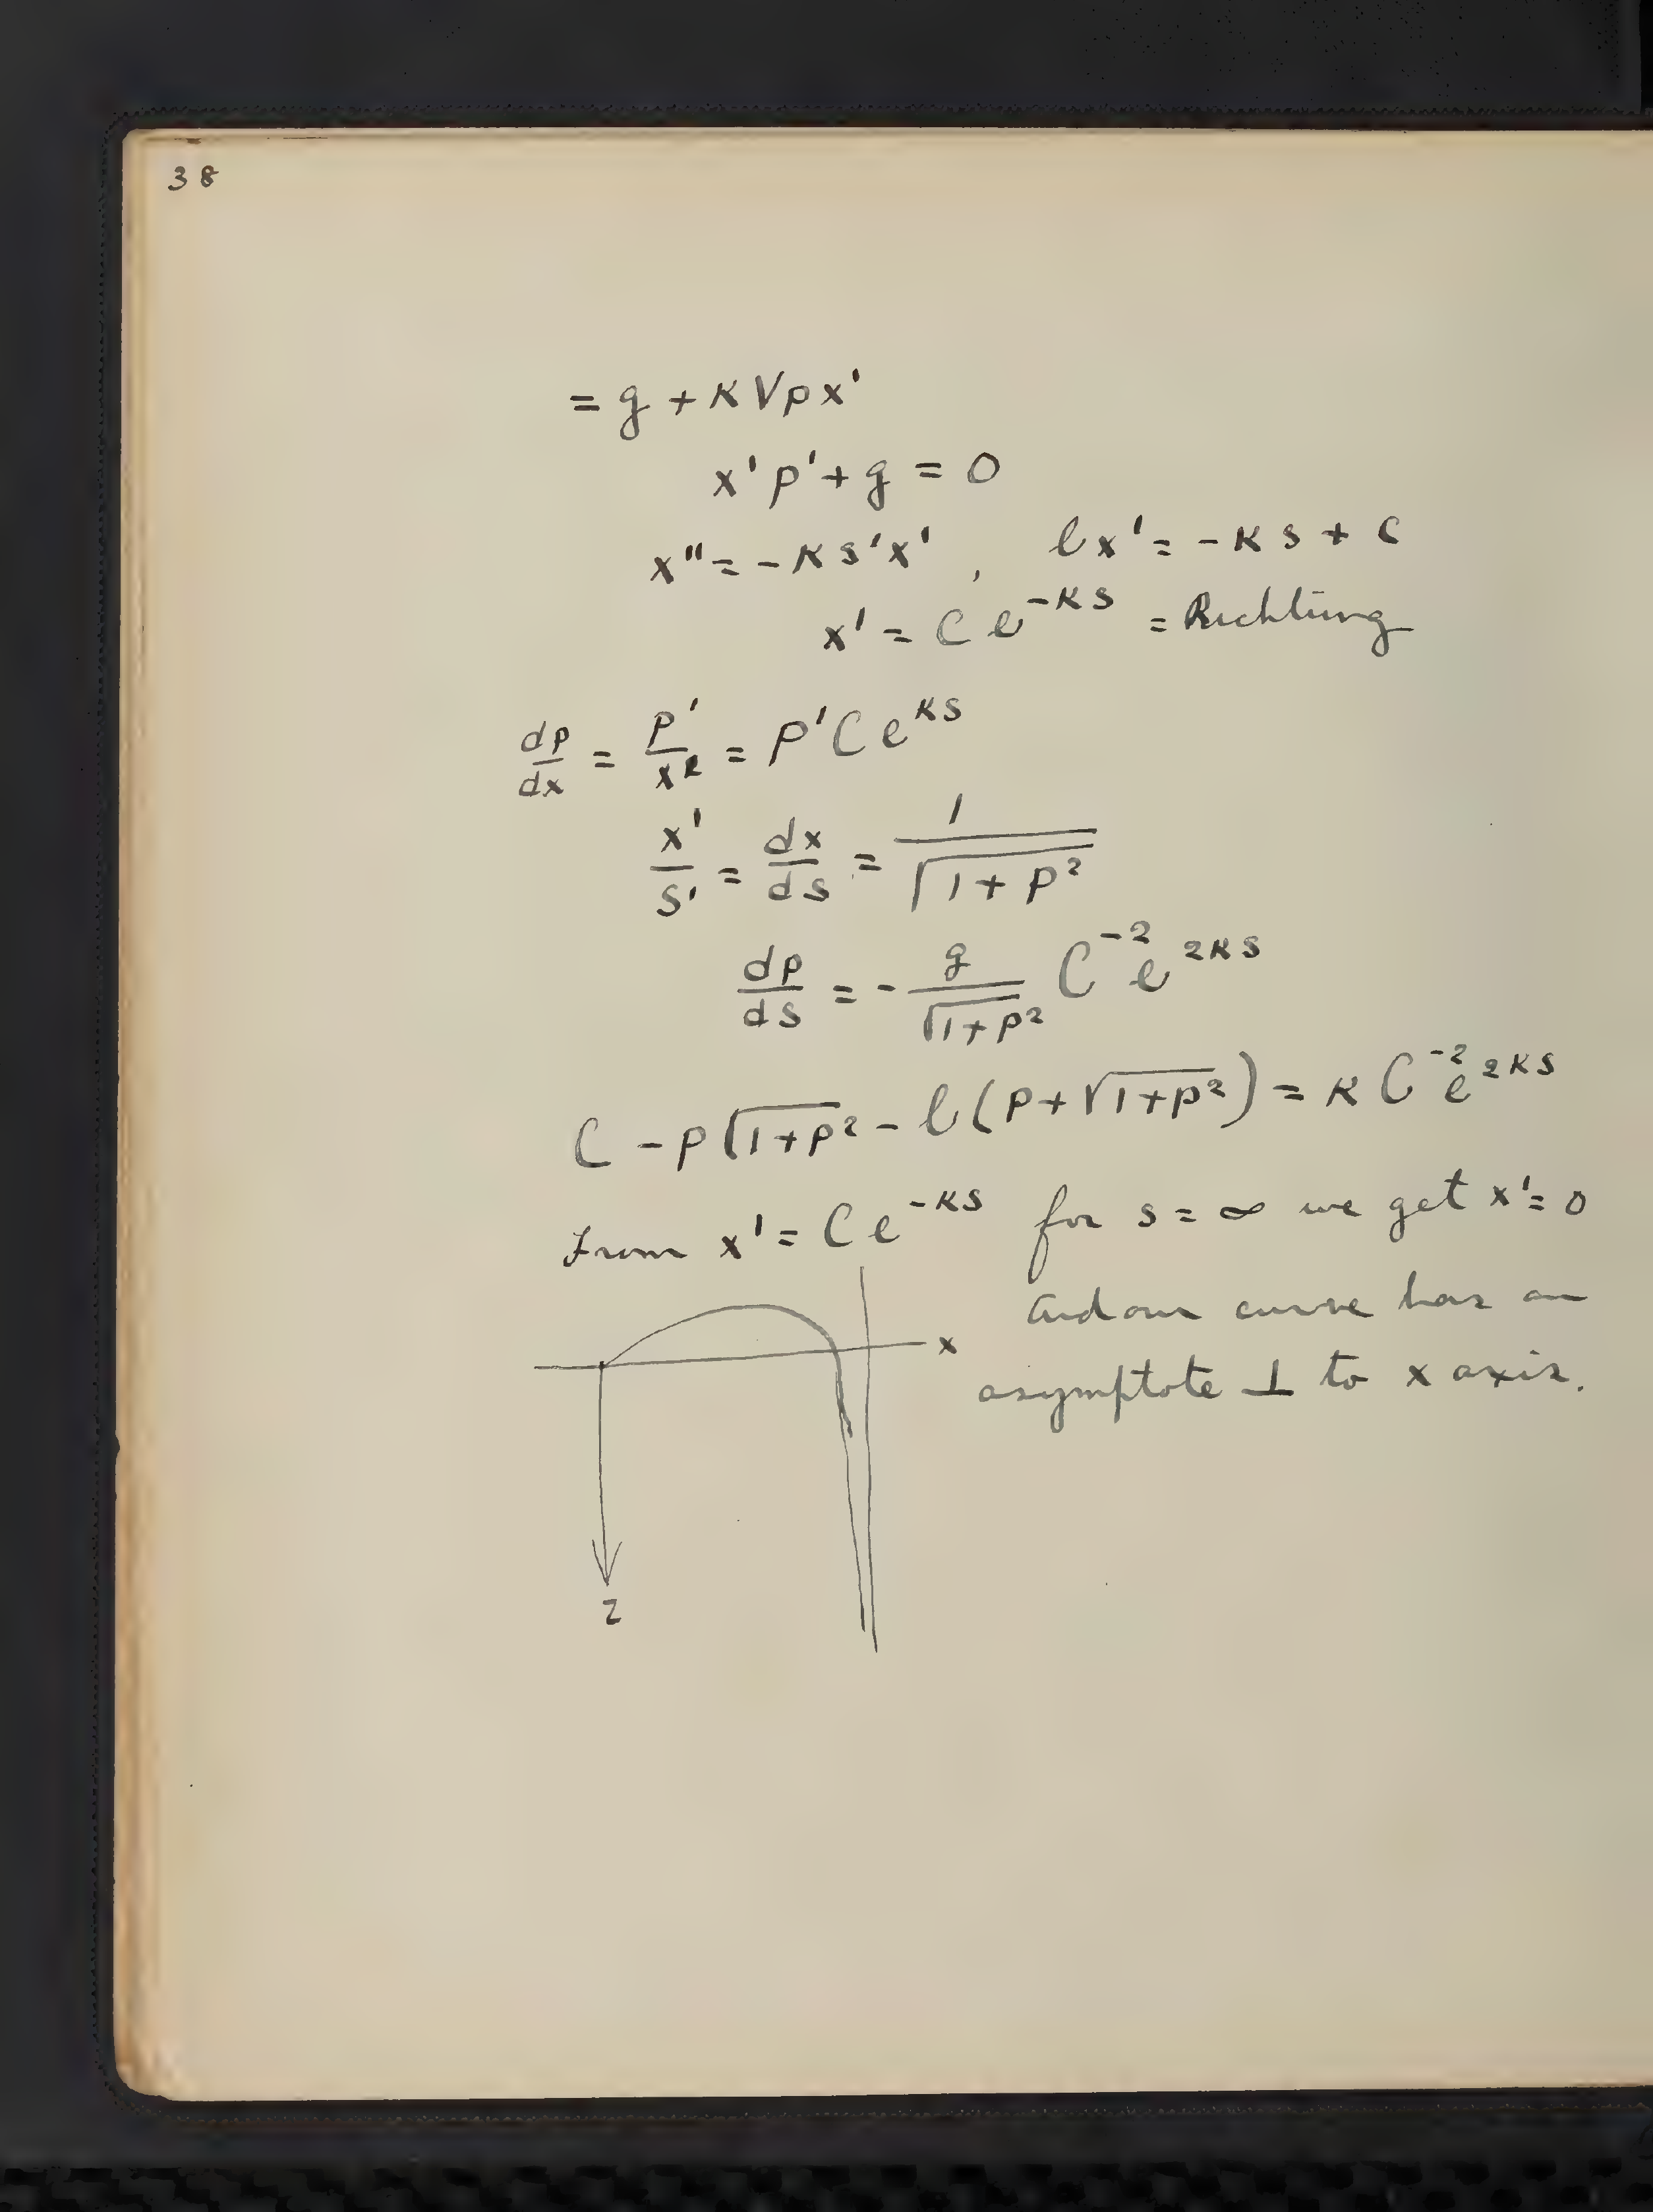 38
= g + κVpx'
x'p' + g = 0
x'' = -κs'x' , lx' = -κs + C
x' = Ce^{-κs} = Richtung
dp/dx = p'/x² = p'Ce^{κs}
x'/s' = dx/ds = 1/√(1+p²)
dp/ds = - g/√(1+p²) C^{-2} e^{2κs}
C - p√(1+p²) - l(p+√(1+p²)) = κ C^{-2} e^{2κs}
From x' = Ce^{-κs} for s = ∞ we get x' = 0
and our curve has an
x
asymptote ⊥ to x axis.
z